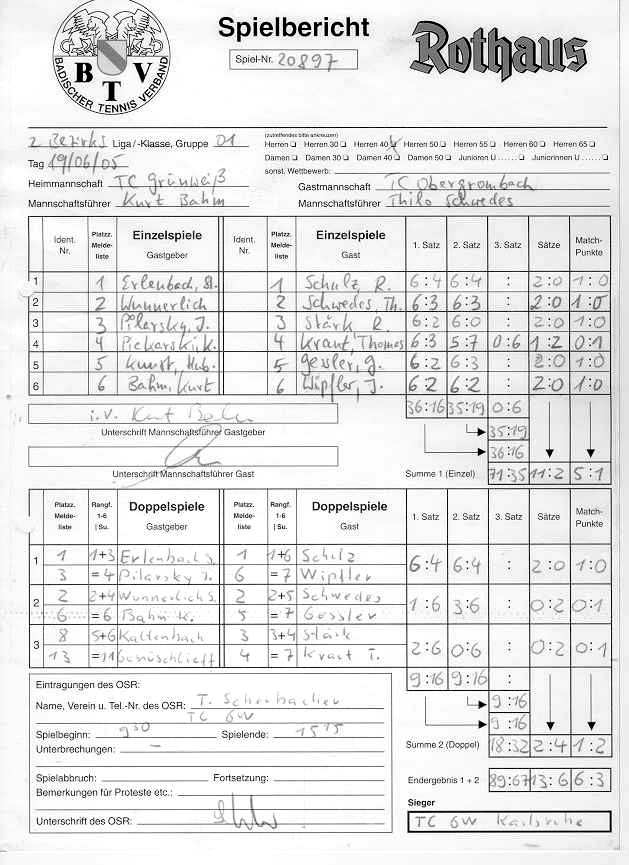 BADISCHER TENNIS VERBAND
BTV
Spielbericht
Spiel-Nr. 20897
Rothaus
2 Bezirks Liga/-Klasse, Gruppe 01
Tag 19/06/05
Heimmannschaft TC Grünweiß
Mannschaftsführer Kurt Bahm
(zutreffendes bitte ankreuzen)
Herren Herren 30 Herren 40 Herren 50 Herren 55 Herren 60 Herren 65
Damen Damen 30 Damen 40 Damen 50 Junioren U ...... Juniorinnen U ......
sonst. Wettbewerb:
Gastmannschaft TC Obergrombach
Mannschaftsführer Thilo Schwedes
Ident. Nr. Platzz. Meldeliste Einzelspiele Gastgeber Ident. Nr. Platzz. Meldeliste Einzelspiele Gast 1. Satz 2. Satz 3. Satz Sätze Match-Punkte
1 1 Erlenbach, St. 1 Schulz, R. 6:4 6:4 : 2:0 1:0
2 2 Wunnerlich 2 Schwedes, Th. 6:3 6:3 : 2:0 1:0
3 3 Pilarsky, J. 3 Stärk R. 6:2 6:0 : 2:0 1:0
4 4 Piekarski, K. 4 Kraut, Thomas 6:3 5:7 0:6 1:2 0:1
5 5 Kunst, Hub. 5 Gessler, G. 6:2 6:3 : 2:0 1:0
6 6 Bahm, Kurt 6 Wipfler, J. 6:2 6:2 : 2:0 1:0
i.V. Kurt Bahm 36:16 35:19 0:6
Unterschrift Mannschaftsführer Gastgeber 35:19
36:16
Unterschrift Mannschaftsführer Gast Summe 1 (Einzel) 71:35 11:2 5:1
Platzz. Meldeliste Rangf. 1-6 | Su. Doppelspiele Gastgeber Platzz. Meldeliste Rangf. 1-6 | Su. Doppelspiele Gast 1. Satz 2. Satz 3. Satz Sätze Match-Punkte
1 1 1+3 Erlenbach S. 1 1+6 Schulz 6:4 6:4 : 2:0 1:0
3 =4 Pilarsky J. 6 =7 Wipfler
2 2 2+4 Wunnerlich S. 2 2+5 Schwedes 1:6 3:6 : 0:2 0:1
6 =6 Bahm K. 5 =7 Gessler
3 8 5+6 Kaltenbach 3 3+4 Stärk 2:6 0:6 : 0:2 0:1
13 =11 4 =7 Kraut T.
9:16 9:16 :
9:16
9:16
Summe 2 (Doppel) 18:32 2:4 1:2
Endergebnis 1 + 2 89:67 13:6 6:3
Sieger
TC GW Karlsruhe
Eintragungen des OSR:
Name, Verein u. Tel.-Nr. des OSR: T. Scherbacher
TC GW
Spielbeginn: 9 30 Spielende: 15 15
Unterbrechungen: -
Spielabbruch: Fortsetzung:
Bemerkungen für Proteste etc.:
Unterschrift des OSR: